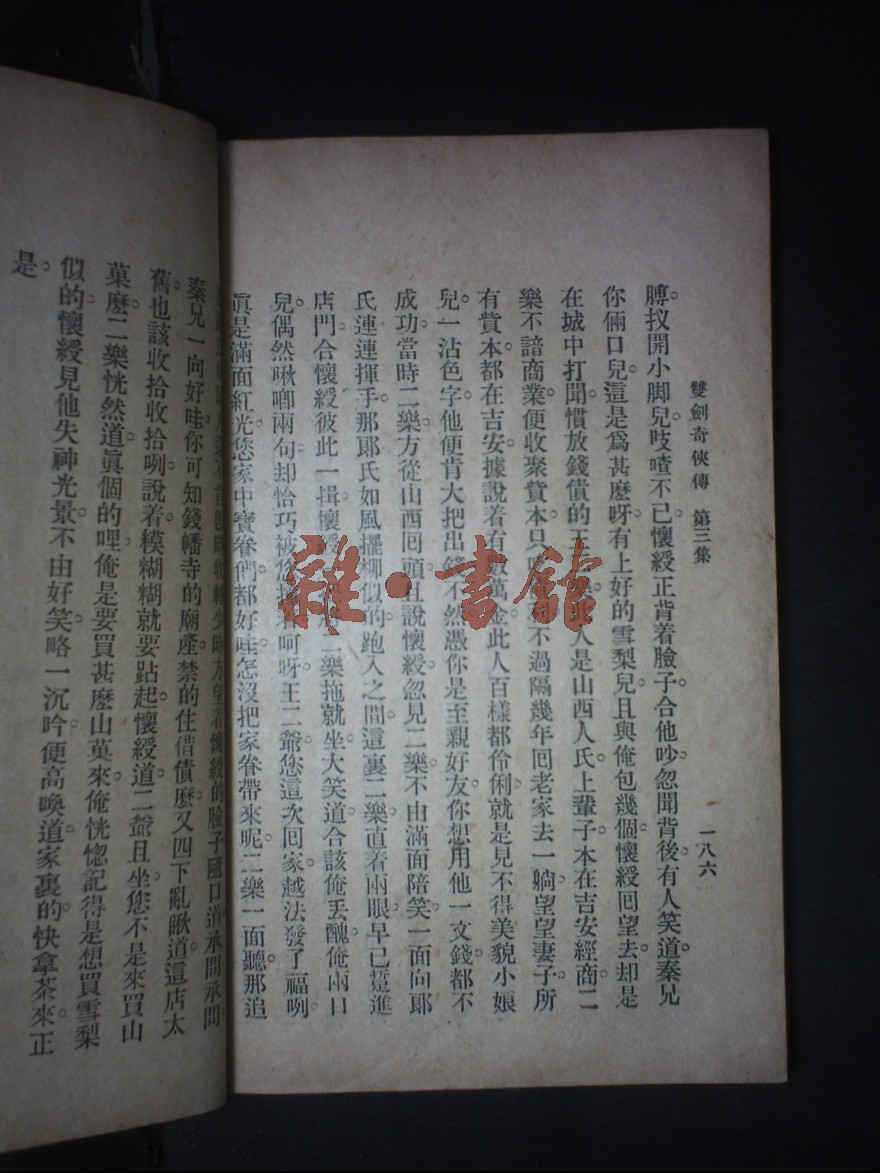 雙劍奇俠傳 第三集
一八六
膊扠開小脚兒吱喳不已懷綬正背着臉子合他吵忽聞背後有人笑道秦兄
你倆口兒這是爲甚麽呀有上好的雪梨兒且與俺包幾個懷綬回望去却是
在城中打聞慣放錢債的王 人是山西人氏上輩子本在吉安經商二
樂不諳商業便收聚貲本只 不過隔幾年回老家去一躺望望妻子所
有貲本都在吉安據說着有數萬金此人百樣都伶俐就是見不得美貌小娘
兒一沾色字他便肯大把出錢不然憑你是至親好友你想用他一文錢都不
成功當時二樂方從山西囘頭且說懷綬忽見二樂不由滿面陪笑一面向郥
氏連連揮手那郥氏如風擺柳似的跑入之間這裏二樂直着兩眼早已踅進
店門合懷綬彼此一揖懷綬 二樂拖就坐大笑道合該俺丢醜俺兩口
兒偶然啾唧兩句却恰巧被您 着呵呀王二爺您這次囘家越法發了福咧
眞是滿面紅光您家中寶眷們都好哇怎沒把家眷帶來呢二樂一面聽那追
望着懷綬的臉子隨口道承問承問
秦兄一向好哇你可知錢幡寺的廟產禁的住借債麽又四下亂瞅道這店太
舊也該收拾收拾咧說着模糊糊就要跕起懷綬道二爺且坐您不是來買山
菓麽二樂恍然道眞個的哩俺是要買甚麽山菓來俺恍惚記得是想買雪梨
似的懷綬見他失神光景不由好笑略一沉吟便高喚道家裏的快拿茶來正
是
雜·書館